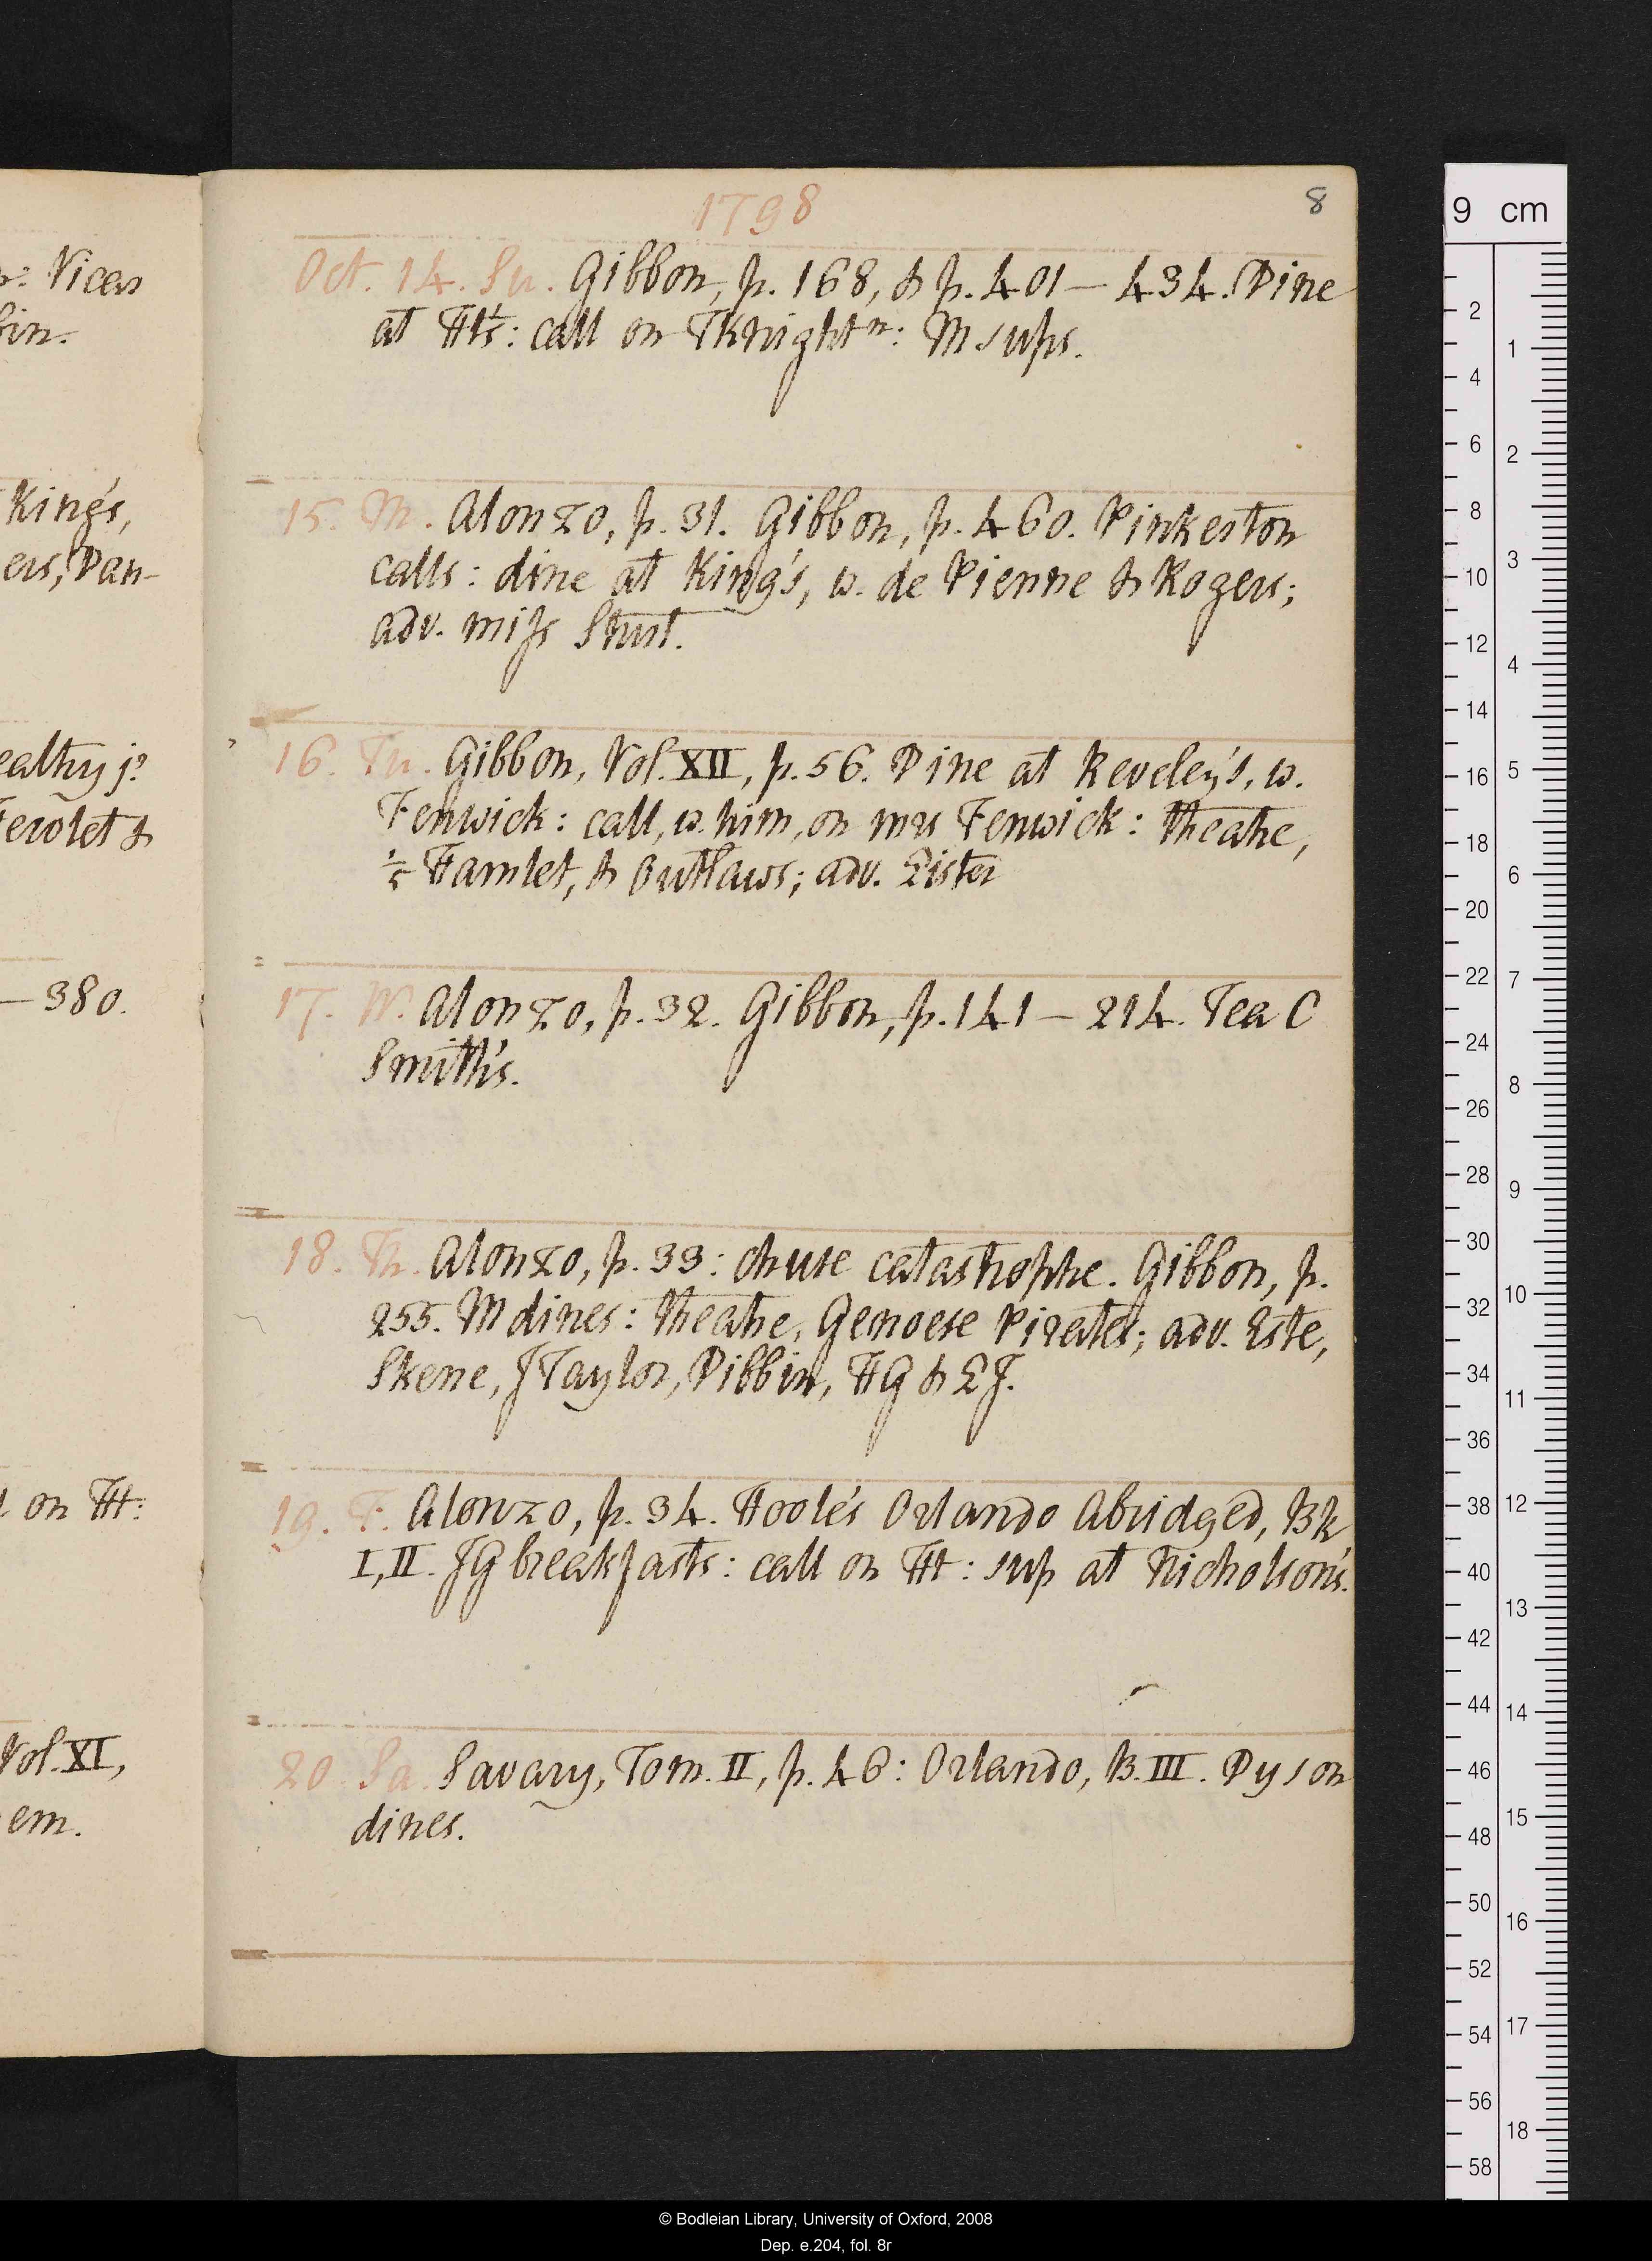 n: Vices
bin.
King's,
ers, Dan-
ealthy j?
Ferolet &
— 380.
on Ht:
Vol. XI,
em.
1798
8
Oct. 14. Su. Gibbon, p. 168, & p. 401 — 434. Dine
at Ht's: call on TKnightn: M sups.
15. M. Alonzo, p. 31. Gibbon, p. 460. Pinkerton
calls: dine at King's, w. de Pienne & Rogers;
adv. miss Strut.
16. Tu. Gibbon, Vol. XII, p. 56. Dine at Reveley's, w.
Fenwick: call, w. him, on mrs Fenwick: theatre,
Hamlet, & Outlaws; adv. Lister
17. W. Alonzo, p. 32. Gibbon, p. 141 — 214. Tea C
Smith's.
18. Th. Alonzo, p. 33: chuse catastrophe. Gibbon, p.
255. M dines: theatre, Genoese Pirates; adv. Este,
Skene, J Taylor, Dibbin, HG & LJ.
19. F. Alonzo, p. 34. Hoole's Orlando Abridged, Bk
I, II. JG breakfasts: call on Ht: sup at Nicholson's.
20. Sa. Savary, Tom. II, p. 46: Orlando, B. III. Dyson
dines.
9 cm
2
4
6
8
10
12
14
16
18
20
22
24
26
28
30
32
34
36
38
40
42
44
46
48
50
52
54
56
58
1
2
3
4
5
6
7
8
9
10
11
12
13
14
15
16
17
18
© Bodleian Library, University of Oxford, 2008
Dep. e.204, fol. 8r